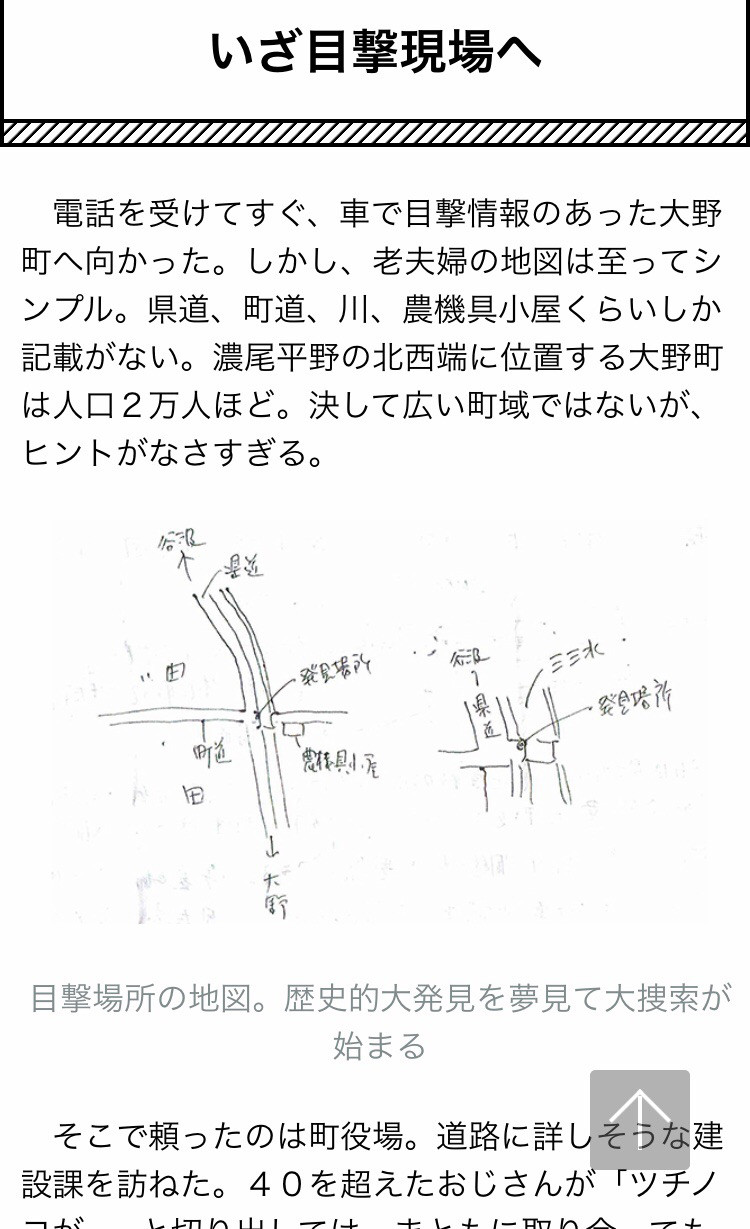 いざ目撃現場へ
　電話を受けてすぐ、車で目撃情報のあった大野
町へ向かった。しかし、老夫婦の地図は至ってシ
ンプル。県道、町道、川、農機具小屋くらいしか
記載がない。濃尾平野の北西端に位置する大野町
は人口２万人ほど。決して広い町域ではないが、
ヒントがなさすぎる。
谷汲
県道
田
発見場所
町道
農機具小屋
田
大野
谷汲
県道
発見場所
目撃場所の地図。歴史的大発見を夢見て大捜索が
始まる
　そこで頼ったのは町役場。道路に詳しそうな建
設課を訪ねた。４０を超えたおじさんが「ツチノ